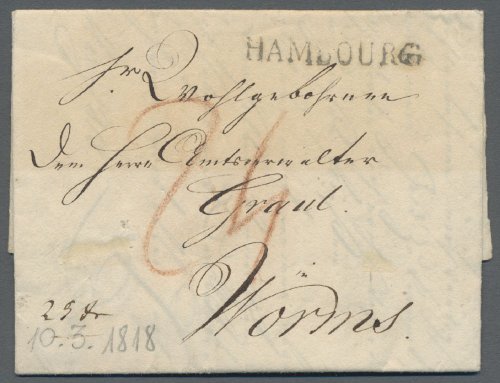 HAMBOURG
Sr Wohlgebohren
dem Herrn Amtsverwalter
Graul.
Wörms.
24
10.3.1818